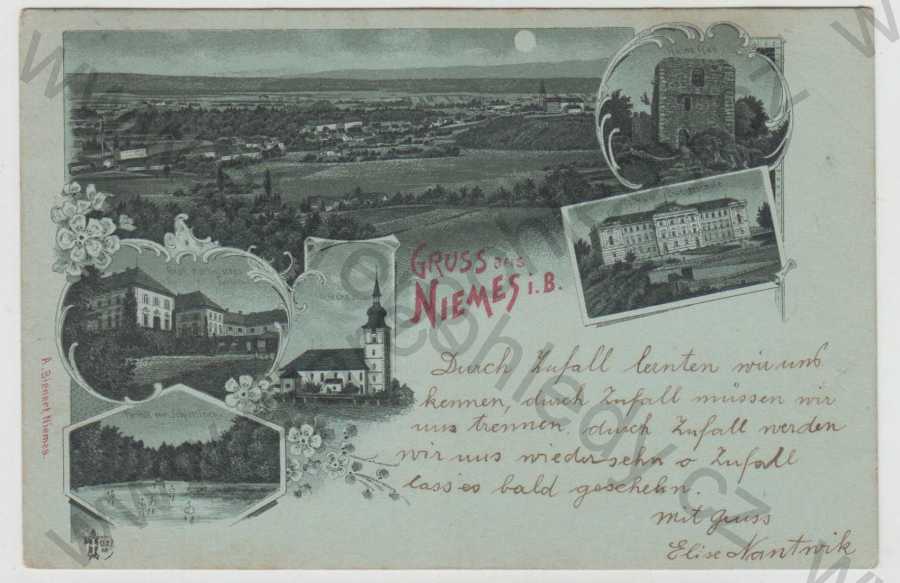 GRUSS aus
NIEMES i. B.
Durch Zufall lernten wir uns
kennen, durch Zufall müssen wir
uns trennen. durch Zufall werden
wir uns wiedersehn o Zufall
lass es bald geschehn.
Mit Gruss
Elise Nantwik
A. Bienert, Niemes.